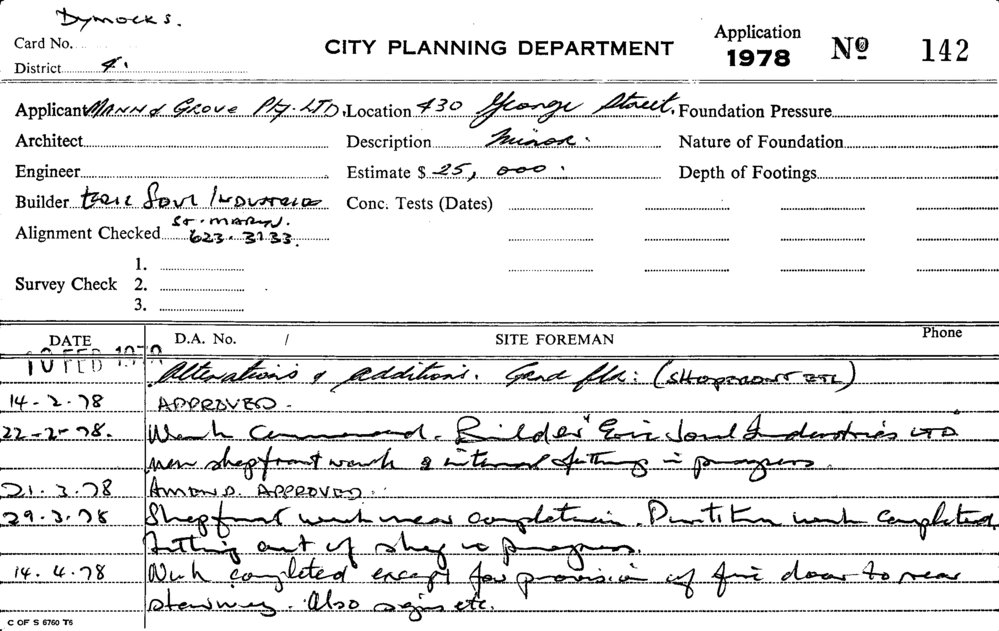 Dymocks.
Card No.
District 4.
CITY PLANNING DEPARTMENT
Application
1978
No 142
Applicant Mann & Grove Pty. LTD.
Location 430 George Street.
Foundation Pressure
Architect
Description Minor.
Nature of Foundation
Engineer
Estimate $ 25,000.
Depth of Footings
Builder Industries
Conc. Tests (Dates)
St. Marys.
Alignment Checked 623.3133.
1.
Survey Check 2.
3.
DATE D.A. No. / SITE FOREMAN Phone
10 FEB 1978 Alterations & additions. Grnd flr: (SHOPFRONT ETC)
14-2-78 APPROVED.
22-2-78. Work Commenced. Builder "Eric Industries LTD
new shopfront work & internal fitting in progress.
21.3.78 AMEND. APPROVED.
29.3.78 Shopfront work near completion. Partition work completed
fitting out of shop in progress.
14.4.78 Work completed except for provision of fire door to rear
stairway. Also signs etc.
C OF S 6760 T6